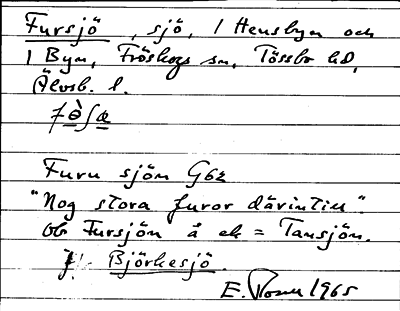 Fursjö, sjö, / Hensbyn och
/ Byn, Fröskogs sn, Tössbo hd,
Älvsb. l.
Furu sjön Gbz
"Nog stora furor därintill".
Fursjön å ek = Tansjön.
Jfr Björkesjö.
E. 1965